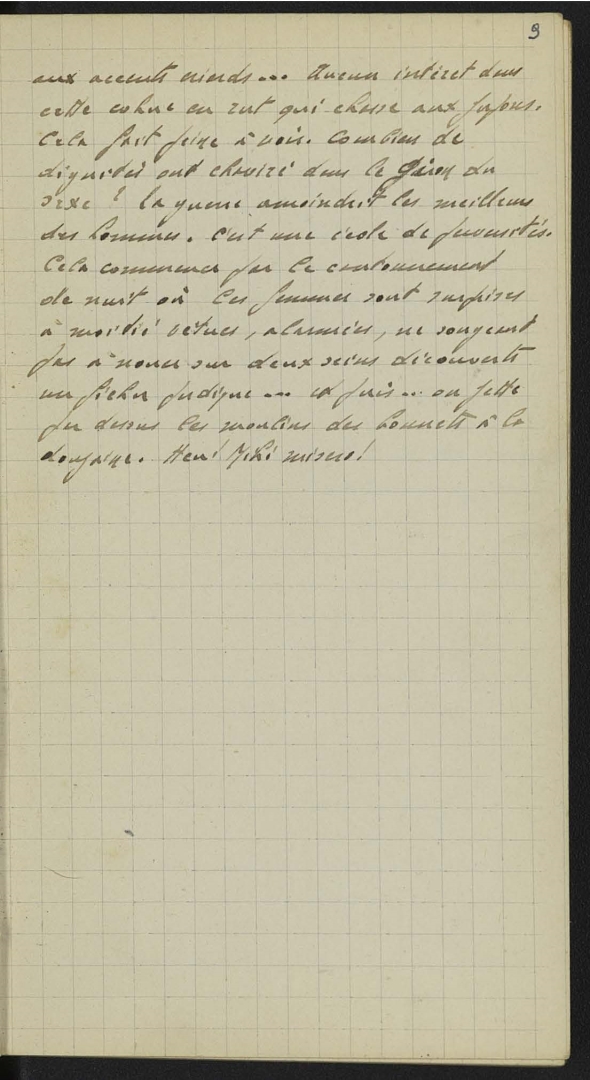 9
aux accents criards... Aucun intérêt dans
cette cohue en rut qui chasse aux jupons.
Cela fait peine à voir. Combien de
dignités ont chaviré dans le giron du
sexe ! La guerre amoindrit les meilleurs
des hommes. C'est une école de perversités.
Cela commence par le cantonnement
de nuit où les femmes sont surprises
à moitié vêtues, alarmées, ne songeant
pas à nouer sur deux seins découverts
un fichu pudique... et puis... on jette
par dessus les moulins des bonnets à la
douzaine. Heu! Mihi misero!